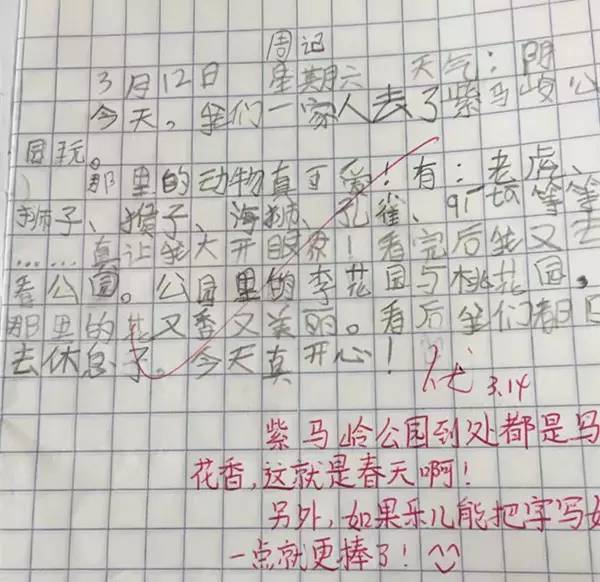 周记
3月12日 星期六 天气：阴
今天。我们一家人去了紫马岭公
园玩。
那里的动物真可爱！有：老虎、
狮子、猴子、海狮、孔雀、等等
……真让我大开眼界！看完后我又去
看公园。公园里的李花园与桃花园，
那里的花又香又美丽。看后我们都回
去休息了。今天真开心！
优 3.14
紫马岭公园到处都是鸟
花香，这就是春天啊！
另外，如果乐儿能把字写好
一点就更棒了！